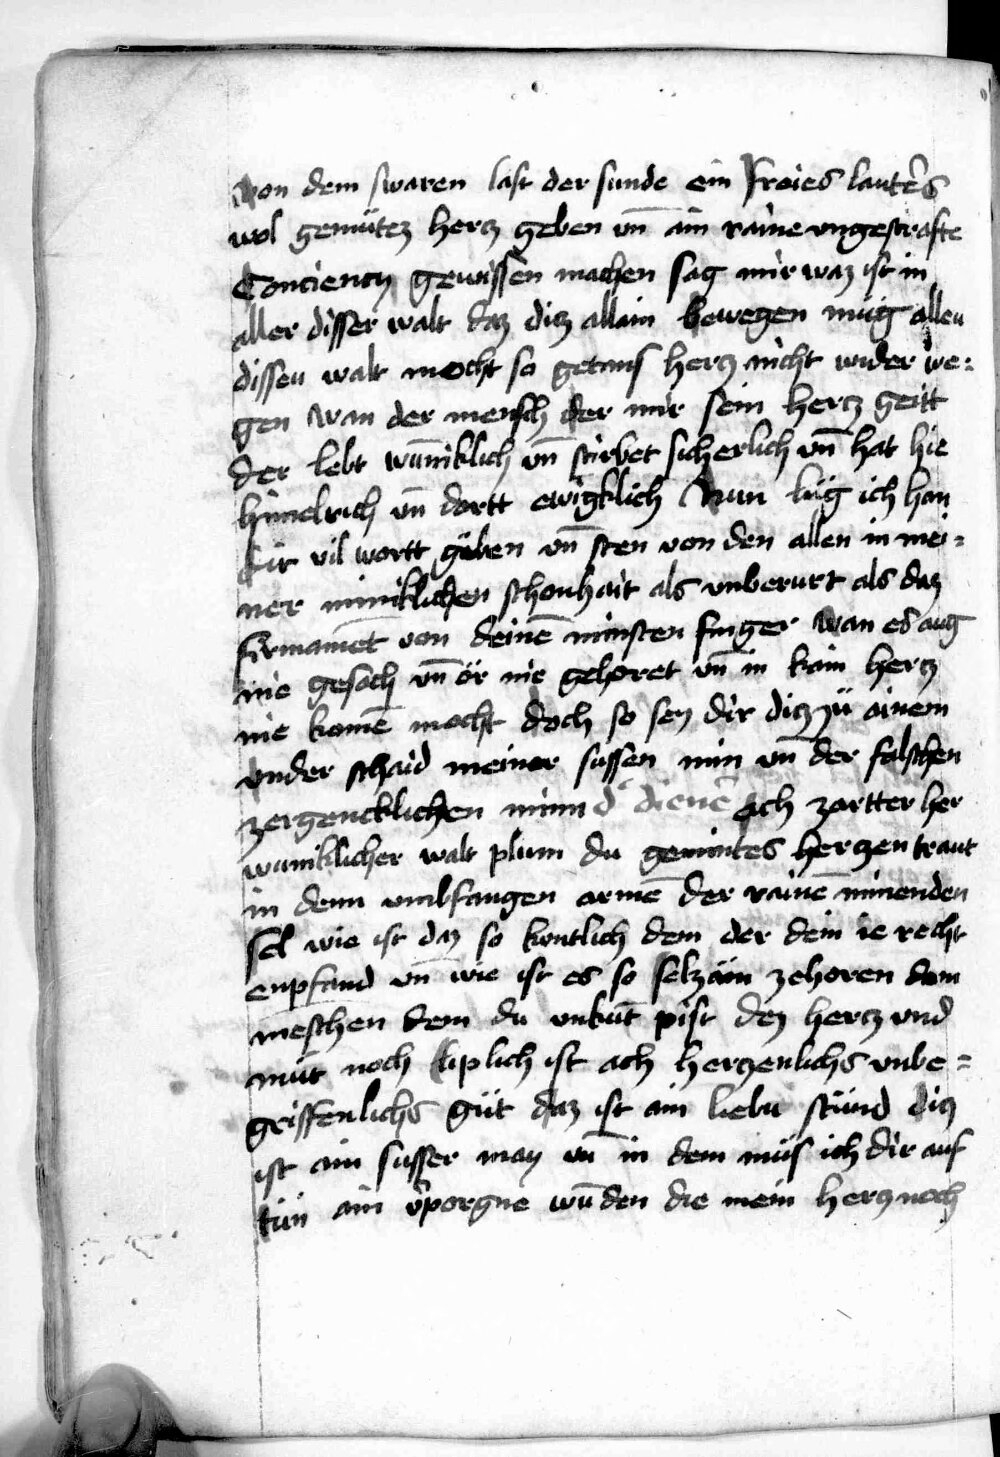 von dem swaren last der sunde ein freies lauters
wol gemütez hercz geben vn̄ ain raine vngestrafte
Conciencz gewissen machen sag mir waz ist in
aller disser walt daz dicz allain bewegen müg allen
dissen walt mocht so getans hercz nicht wider we=
gen wan der mensch der mir sein hercz geitt
der lebt wūniklich vn̄ stirbet sicherlich vn̄ hat hie
himelrich vn̄ dortt ewigklich Nun lüg ich han
dir vil wortt geben vn̄ sten von den allen in mei=
ner miniklichen schonhait als vnberurt als daz
firmamēt von deinē minsten finger wan es aug
nie gesach vn̄ ör nie gehoret vn̄ in kain hercz
nie komē mocht doch so sey dir dicz zü ainem
vnder schaid meiner sussen min vn̄ der falschen
zergencklichen minn d dienē ach zartter her
wuniklicher walt plum du gemintes herczen traut
in denn vmbfangen armē der rainē minenden
sel wie ist daz so kuntlich dem der dein ie recht
enpfand vn̄ wie ist es so selzam zehoren dem
meschen dem du vnkūt pist dez hercz vnd
müt noch liplich ist ach herczenlichs vnbe=
griffenlichs güt daz ist ain liebu stünd dicz
ist ain susser may vn̄ in dem müs ich dir auf
tün ain v̄porgne wūden die mein hercz noch